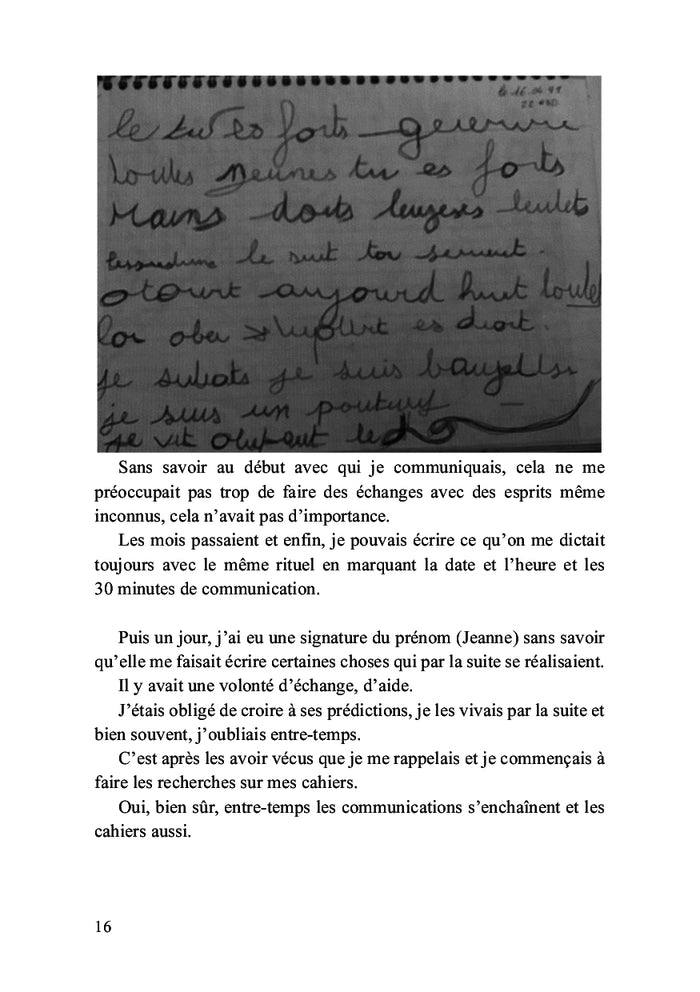 le 16.04.99
le tu es forts
toutes jeunes tu es forts
Mains doits
le suit ton serment.
aujourd huit
es droit.
je suis
je suis un
je vit
Sans savoir au début avec qui je communiquais, cela ne me
préoccupait pas trop de faire des échanges avec des esprits même
inconnus, cela n’avait pas d’importance.
Les mois passaient et enfin, je pouvais écrire ce qu’on me dictait
toujours avec le même rituel en marquant la date et l’heure et les
30 minutes de communication.
Puis un jour, j’ai eu une signature du prénom (Jeanne) sans savoir
qu’elle me faisait écrire certaines choses qui par la suite se réalisaient.
Il y avait une volonté d’échange, d’aide.
J’étais obligé de croire à ses prédictions, je les vivais par la suite et
bien souvent, j’oubliais entre-temps.
C’est après les avoir vécus que je me rappelais et je commençais à
faire les recherches sur mes cahiers.
Oui, bien sûr, entre-temps les communications s’enchaînent et les
cahiers aussi.
16